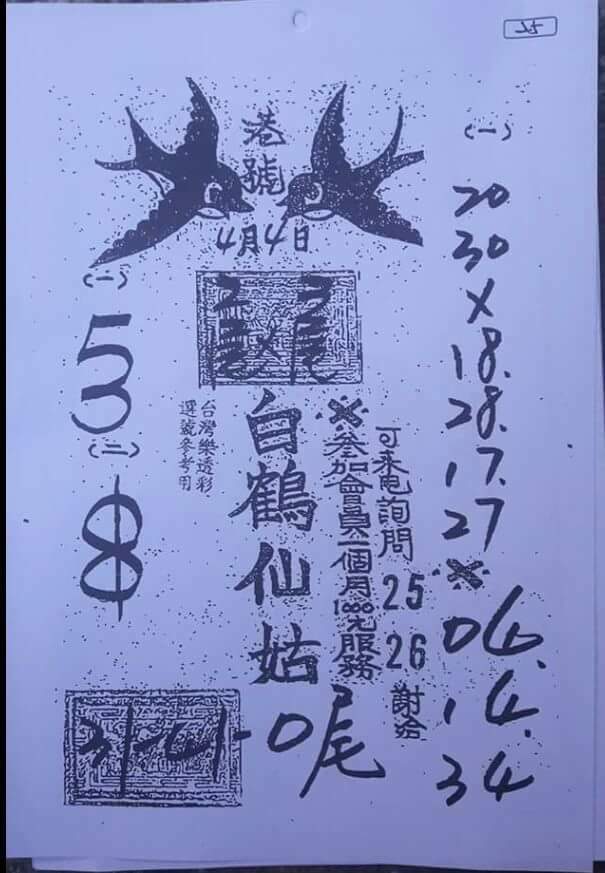 港號
4月4日
(一)
53
(二)
8
台灣樂透彩
選號參考用
白鶴仙姑
※參加會員一個月1000元服務
可來電詢問 25 26 謝洽
31-41-0尾
(一)
20
30
×
18.
28.
17.
27
※
04.
14.
34